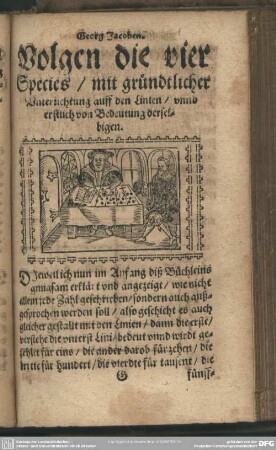 Georg Jacoben.
Volgen die vier
Species / mit gründtlicher
Vnterrichtung auff den Linien / vnnd
erstlich von Bedeutung dersel-
bigen.
DJeweil ich nun im Anfang diß Büchleins
gnugsam erklärt vnd angezeigt / wie nicht
allein jede Zahl geschrieben / sondern auch auß-
gesprochen werden soll / also geschicht es auch
gleicher gestalt mit den Linien / dann die erste /
verstehe die vnterst Lini / bedeut vnnd wirdt ge-
zehlet für eins / die ander darob für zehen / die
dritte für hundert / die vierdte für tausent / die
G
fünff-